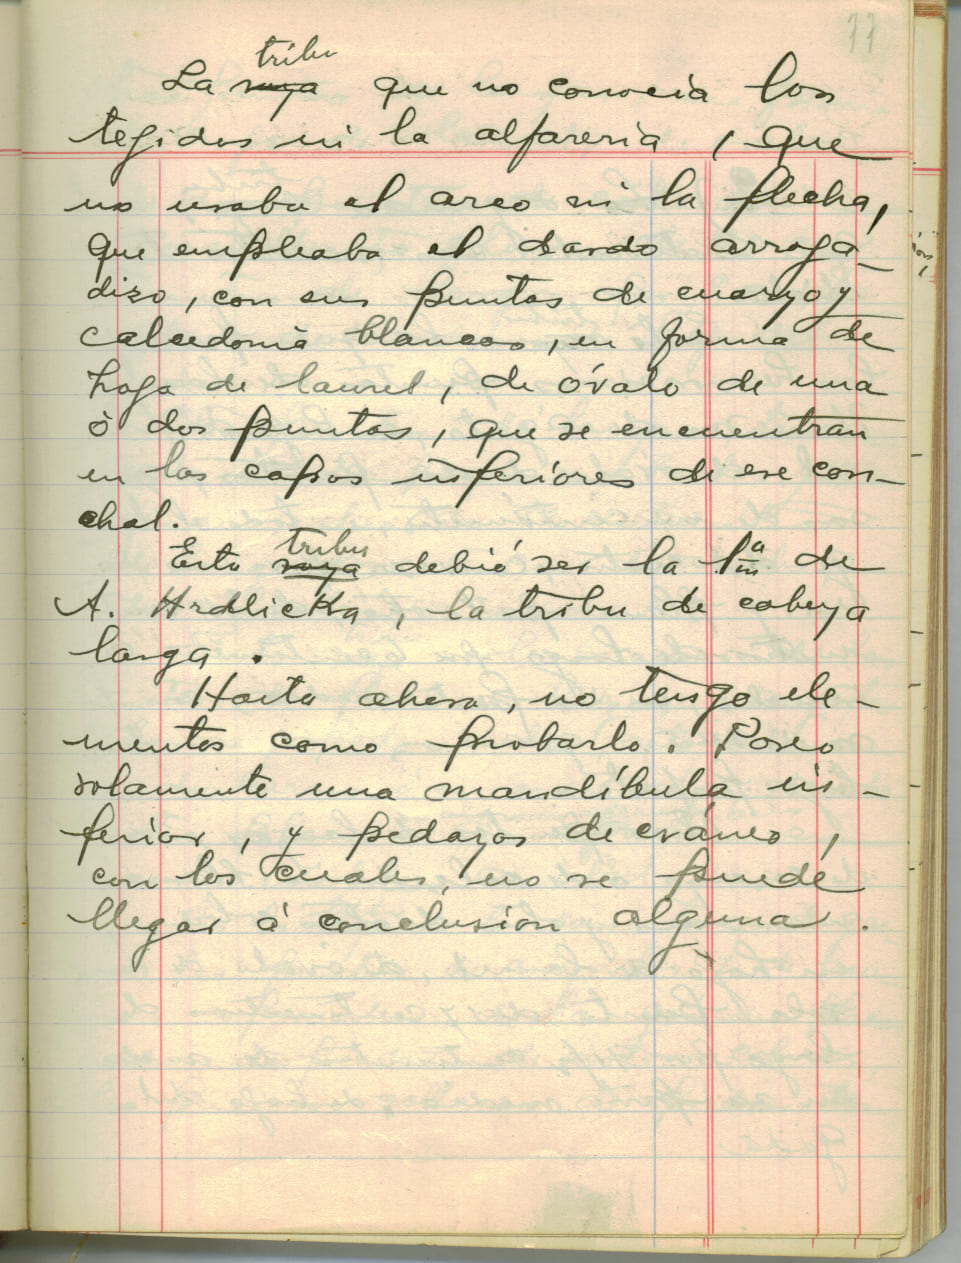 11
tribu
La raza que no conocia los
tegidos ni la alfareria, que
no usaba el arco ni la flecha,
que empleaba el dardo arroja-
dizo, con sus puntas de cuarzo y
calcedonia blancas, en forma de
hoja de laurel, de óvalo de una
ò dos puntas, que se encuentran
en las capas inferiores de ese con-
chal.
tribu
Esta raza debió ser la 1ª de
A. Hrdlicka, la tribu de cabeza
larga.
Hasta ahora, no tengo ele-
mentos como probarlo. Poseo
solamente una mandíbula in-
ferior, y pedazos de cráneo,
con los cuales, no se puede
llegar à conclusion alguna.